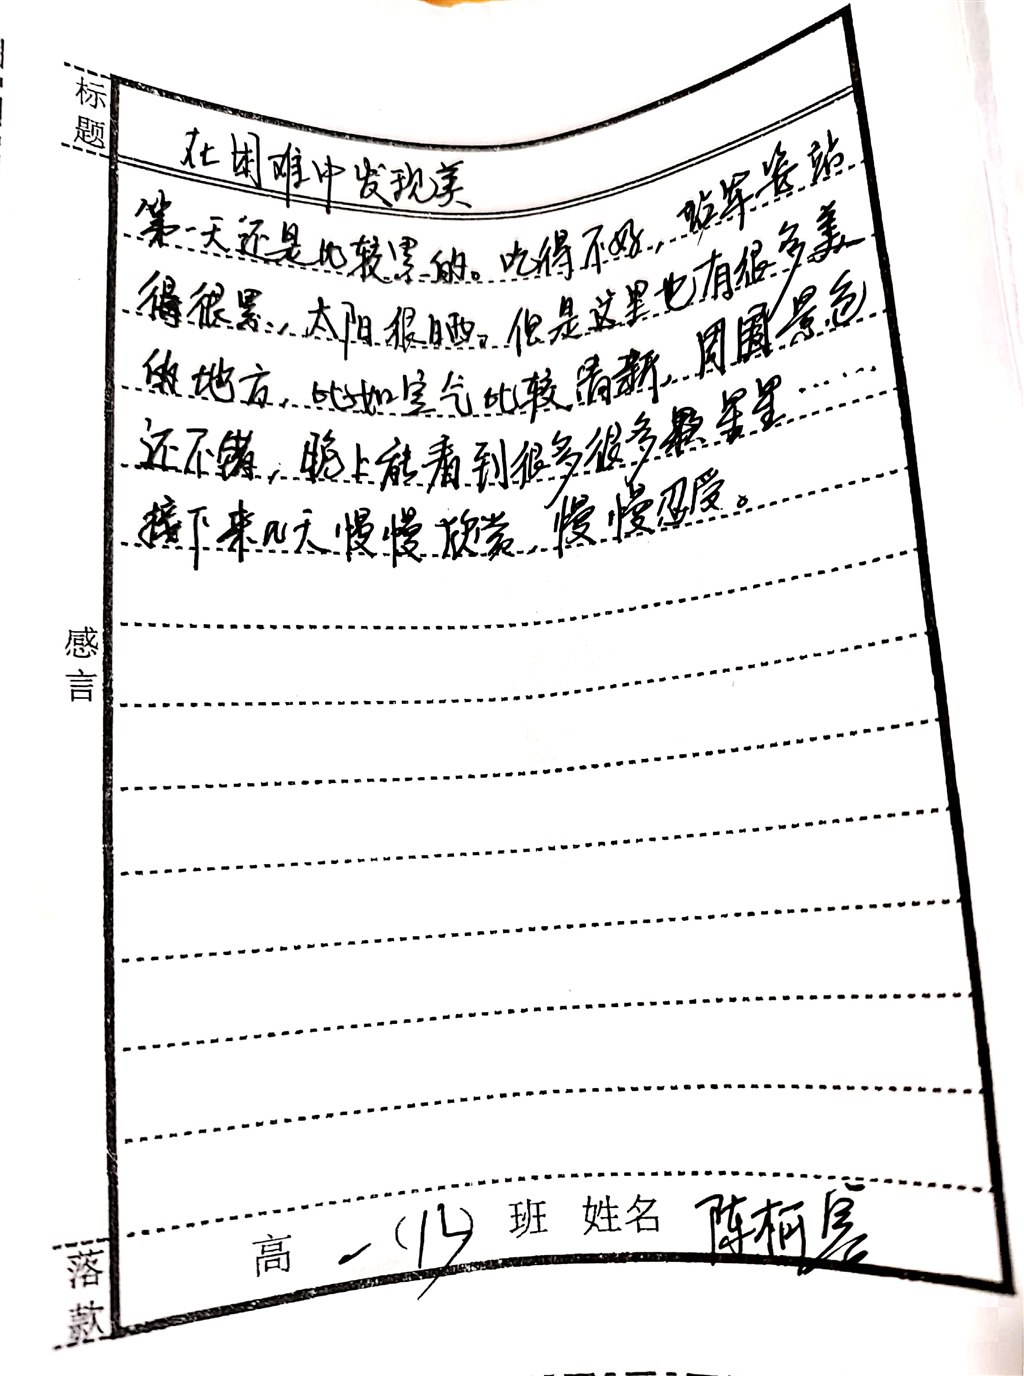 标题
在困难中发现美
第一天还是比较累的。吃得不好，站军姿站
得很累，太阳很晒。但是这里也有很多美
的地方，比如空气比较清新，周围景色
还不错，晚上能看到很多很多颗星星……
接下来几天慢慢欣赏，慢慢忍受。
感言
落款
高一( ) 班 姓名 陈柄